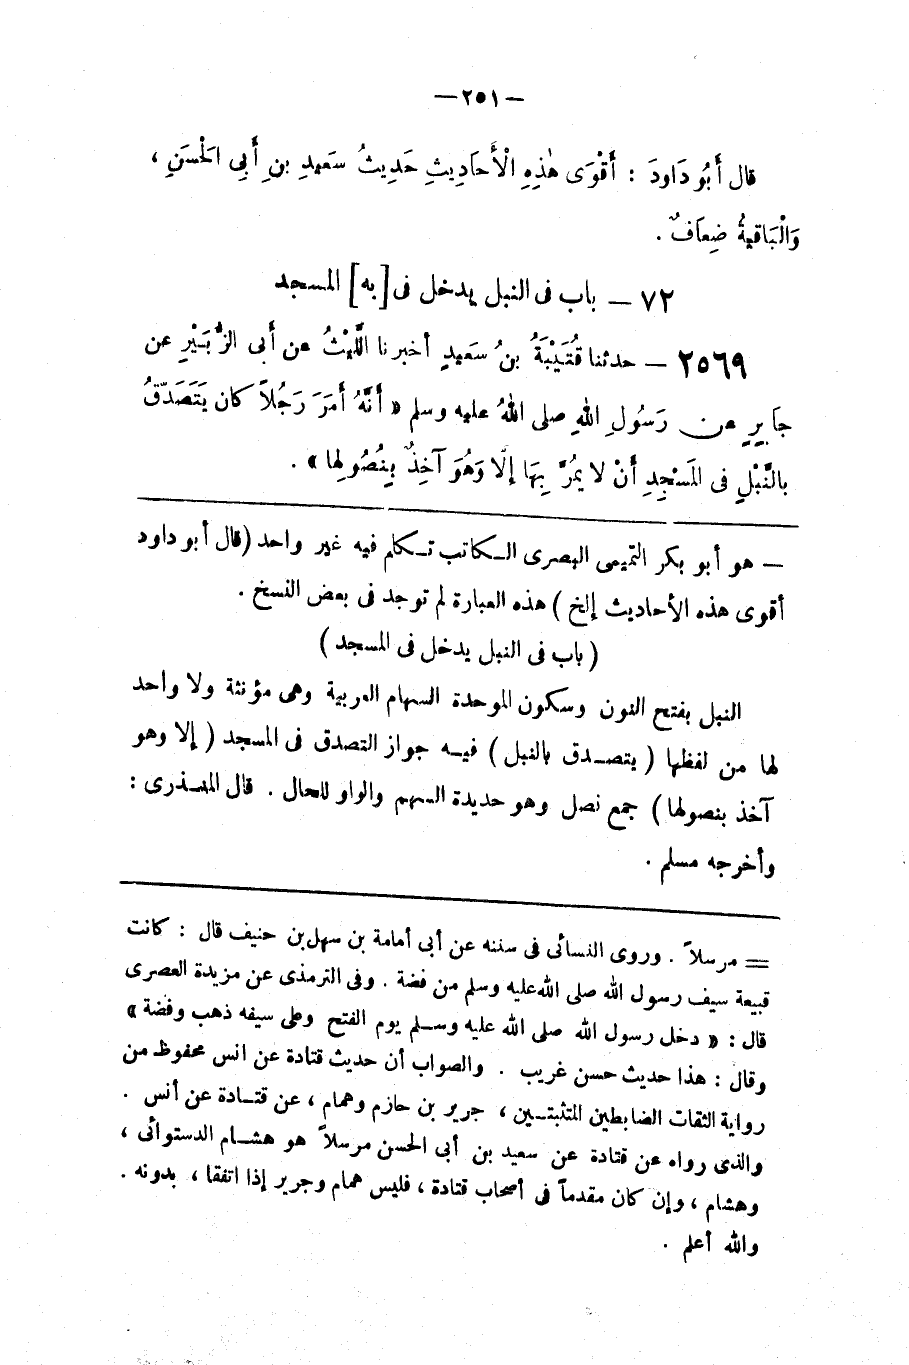 — ٢٥١ —
قال أَبُو دَاودَ : أَقْوَى هٰذِهِ الْأَحَادِيثِ حَدِيثُ سَعيدِ بنِ أَبِى الْحْسَنِ ،
وَالْبَاقيةُ ضِعَافٌ .
٧٢ — باب فى النبل يدخل فى [ به ] المسجد
٢٥٦٩ — حدثنا قُتَيْبَةُ بنُ سَعيدٍ أخبرنا اللَّيْثُ عن أَبى الزُّبَيْرِ عن
جَابِرٍ عن رَسُولِ اللهِ صلى اللهُ عليه وسلم « أَنَّهُ أَمَرَ رَجُلاً كان يَتَصَدّقُ
بالنَّبْلِ فى المَسْجِدِ أَنْ لا يَمُرَّ بِهَا إِلَّا وَهُوَ آخِذٌ بِنُصُولِها » .
— هو أبو بكر التميمى البصرى الكاتب تكلم فيه غير واحد ( قال أبو داود
أقوى هذه الأحاديث إلخ ) هذه العبارة لم توجد فى بعض النسخ .
( باب فى النبل يدخل فى المسجد )
النبل بفتح النون وسكون الموحدة السهام العربية وهى مؤنثة ولا واحد
لها من لفظها ( يتصدق بالنبل ) فيه جواز التصدق فى المسجد ( إلا وهو
آخذ بنصولها ) جمع نصل وهو حديدة السهم والواو للحال . قال المنذرى :
وأخرجه مسلم .
= مرسلاً . وروى النسائى فى سننه عن أبى أمامة بن سهل بن حنيف قال : كانت
قبيعة سيف رسول الله صلى الله عليه وسلم من فضة . وفى الترمذى عن مزيدة العصرى
قال : « دخل رسول الله صلى الله عليه وسلم يوم الفتح وعلى سيفه ذهب وفضة »
وقال : هذا حديث حسن غريب . والصواب أن حديث قتادة عن انس محفوظ من
رواية الثقات الضابطين المتثبتين ، جرير بن حازم وهمام ، عن قتادة عن أنس .
والذى رواه عن قتادة عن سعيد بن أبى الحسن مرسلاً هو هشام الدستوائى ،
وهشام ، وإن كان مقدماً فى أصحاب قتادة ، فليس همام وجرير إذا اتفقا ، بدونه .
والله أعلم .